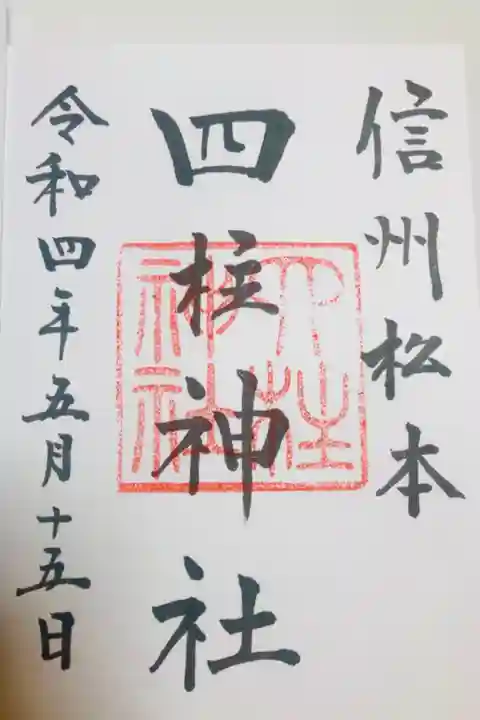 信州松本
四柱神社
令和四年五月十五日
四柱神社